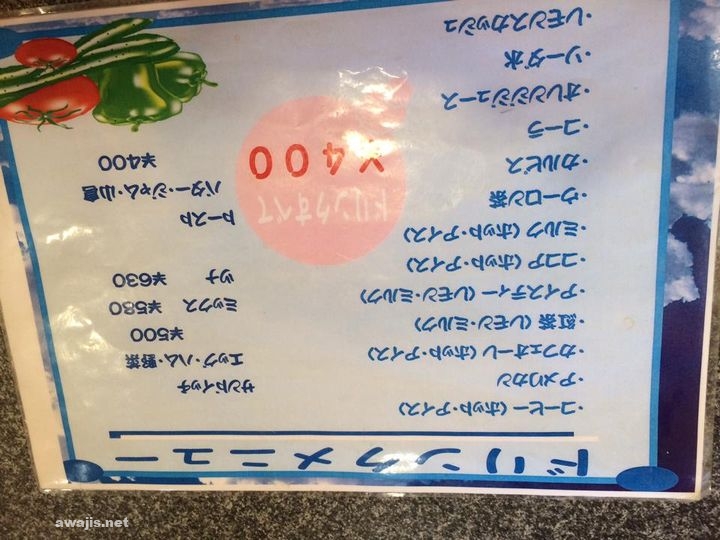 ドリンクメニュー
・コーヒー (ホット・アイス)
・アメリカン
・カフェオーレ (ホット・アイス)
・紅茶 (レモン・ミルク)
・アイスティー (レモン・ミルク)
・ココア (ホット・アイス)
・ミルク (ホット・アイス)
・ウーロン茶
・カルピス
・コーラ
・オレンジジュース
・ソーダ水
・レモンスカッシュ
ドリンクすべて
¥400
サンドイッチ
エッグ・ハム・野菜
¥500
ミックス ¥580
ツナ ¥630
トースト
バター・ジャム・小倉
¥400
awajis.net